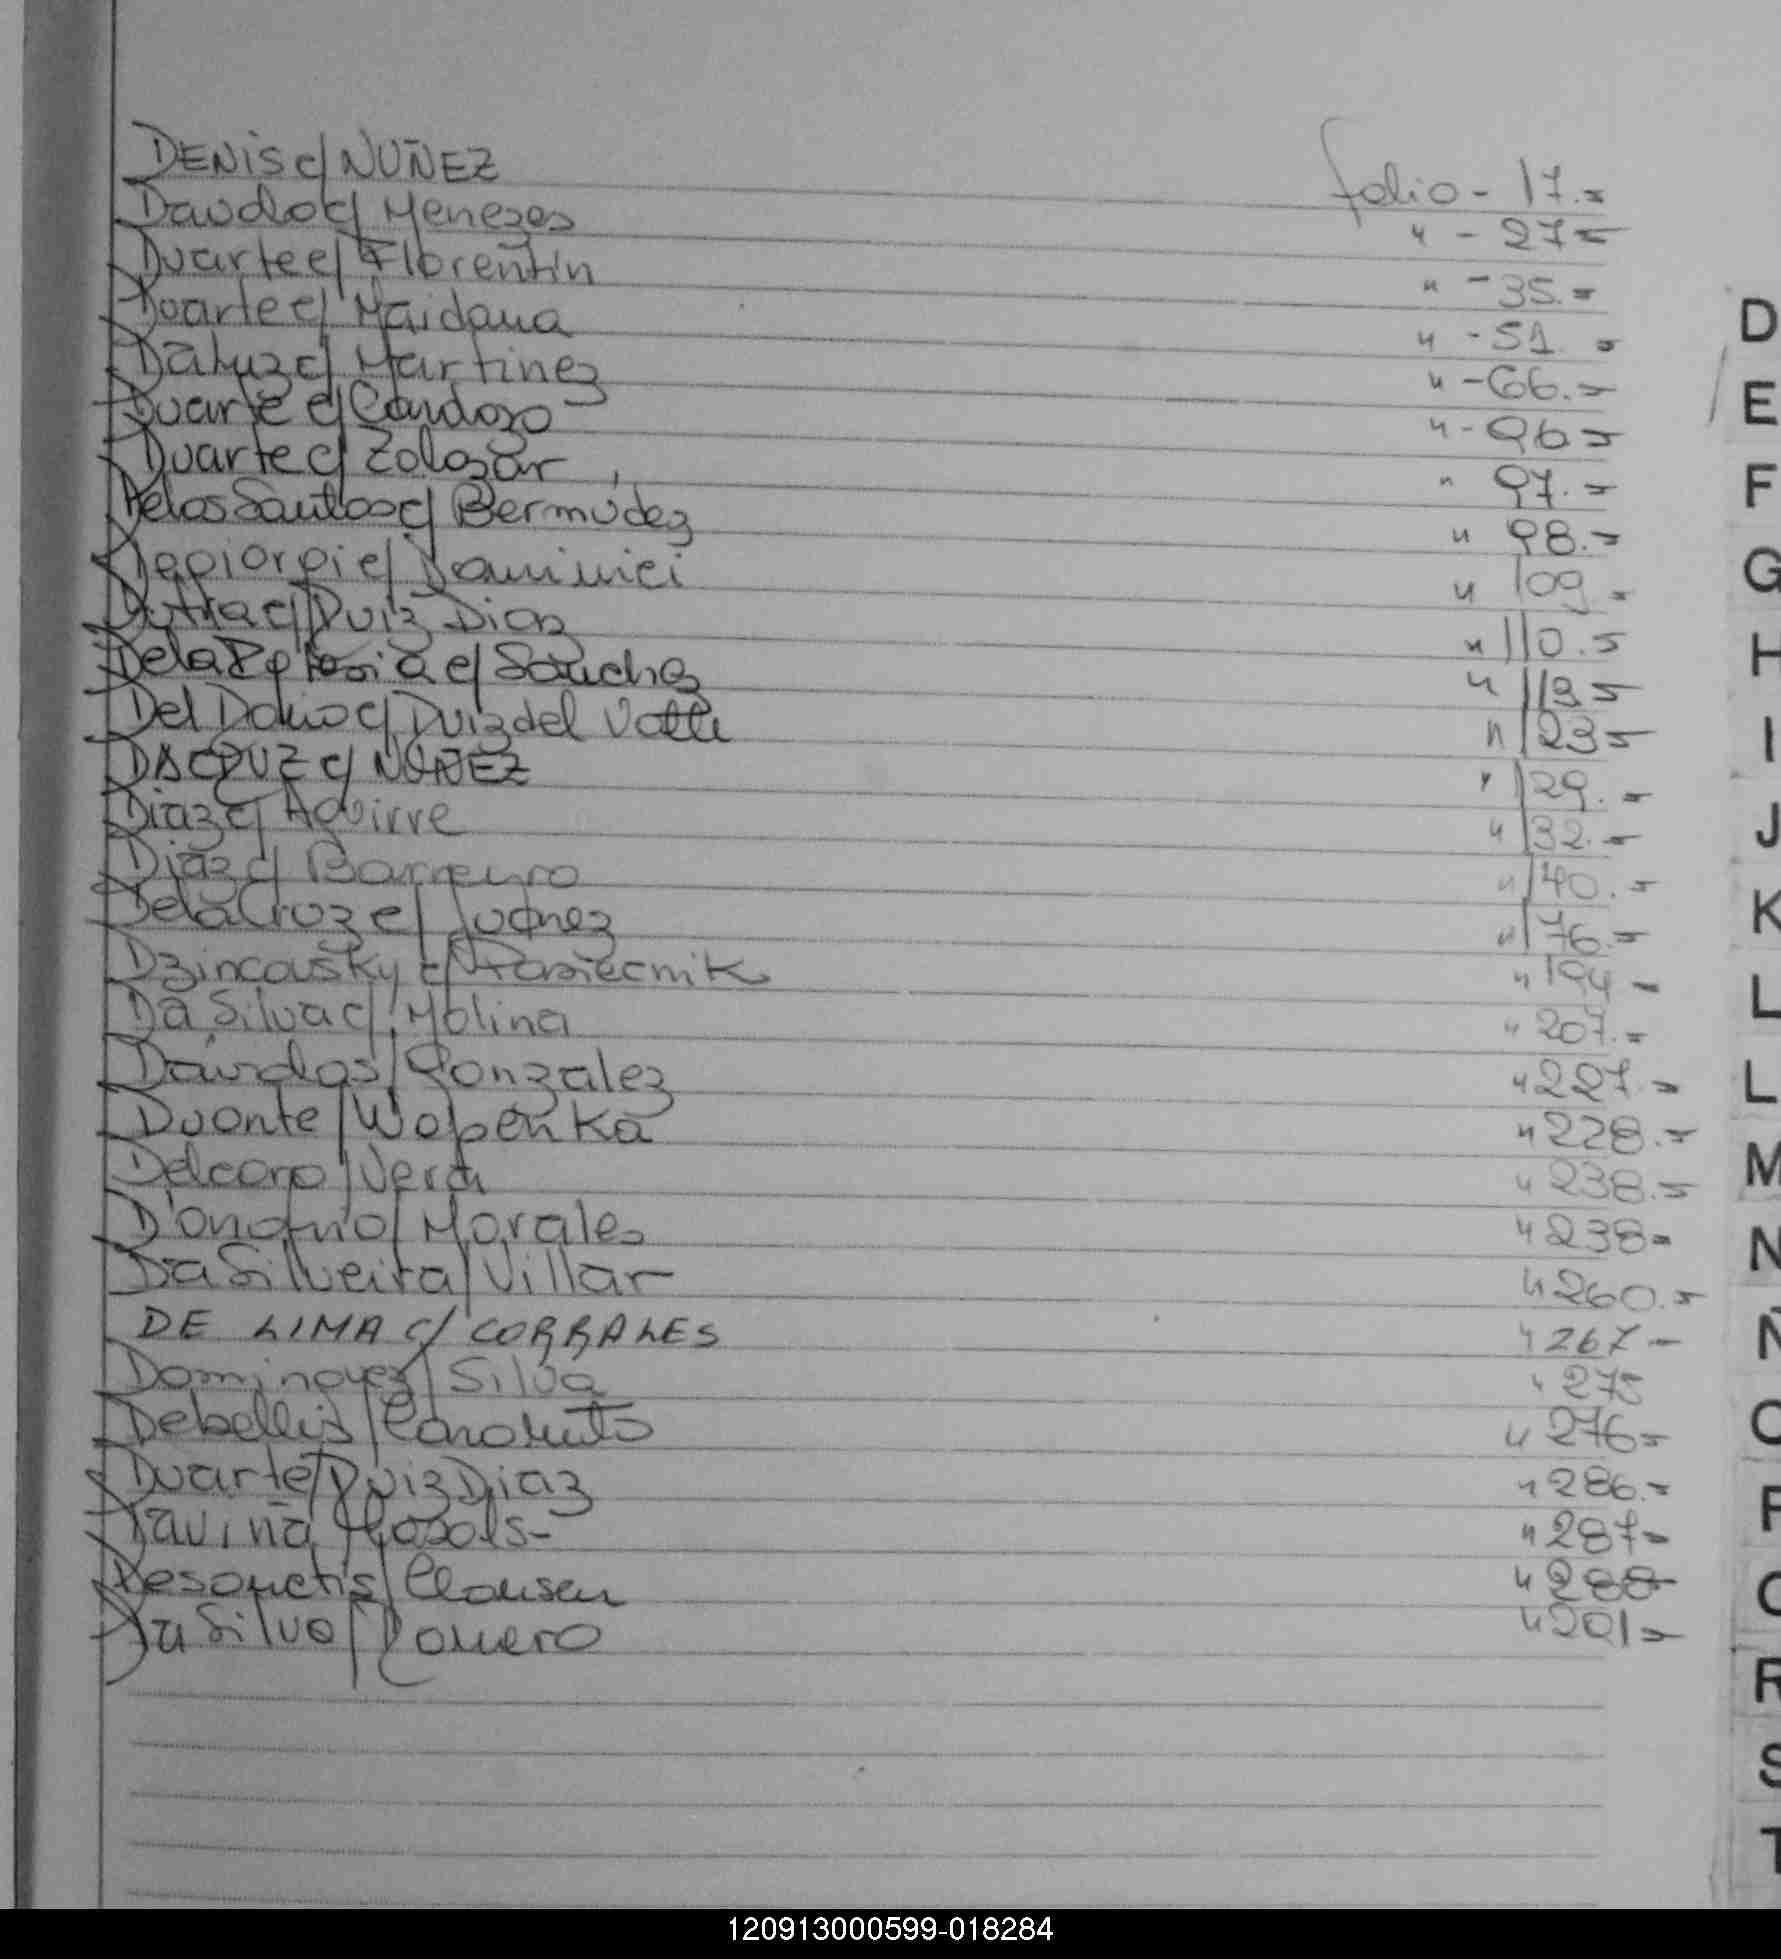 DENIS c/ NUÑEZ folio - 17.=
Davdoc/ Menezes " - 27=
Duarte c/ Florentin " - 35.=
Duarte c/ Maidana " - 51. =
Daluz c/ Martinez " - 66.=
Duarte c/ Cardozo " - 96=
Duarte c/ Zalazar " 97.=
De los Santos c/ Bermudez " 98.=
Degiorgi c/ Dominici " 109.=
Dutra c/ Ruiz Diaz " 110.=
De la Iglesia c/ Sanchez " 113=
Del c/ Ruiz del Valle " 123=
DA CRUZ c/ NUÑEZ " 129.=
Diaz c/ Aguirre " 132.=
Diaz c/ Barreyro " 140.=
De la Cruz c/ " 176.=
Dzincousky c/ Pasiecnik " 194 =
Da Silva c/ Molina " 207.=
Gonzalez " 227.=
Duarte / Wobenka " 228.=
Delcoro / Verdi " 238.=
D'onofrio / Morales " 238=
Da Silveira / Villar " 260.=
DE LIMA c/ CORRALES " 267 -
Dominguez / Silva " 275
Debellis / " 276=
Duarte / Ruiz Diaz " 286.=
Daviña / " 287=
Desanctis / Clausen " 288=
Da Silva / Romero " 291=
D
E
F
G
H
I
J
K
L
L
M
N
Ñ
O
P
Q
R
S
T
120913000599-018284